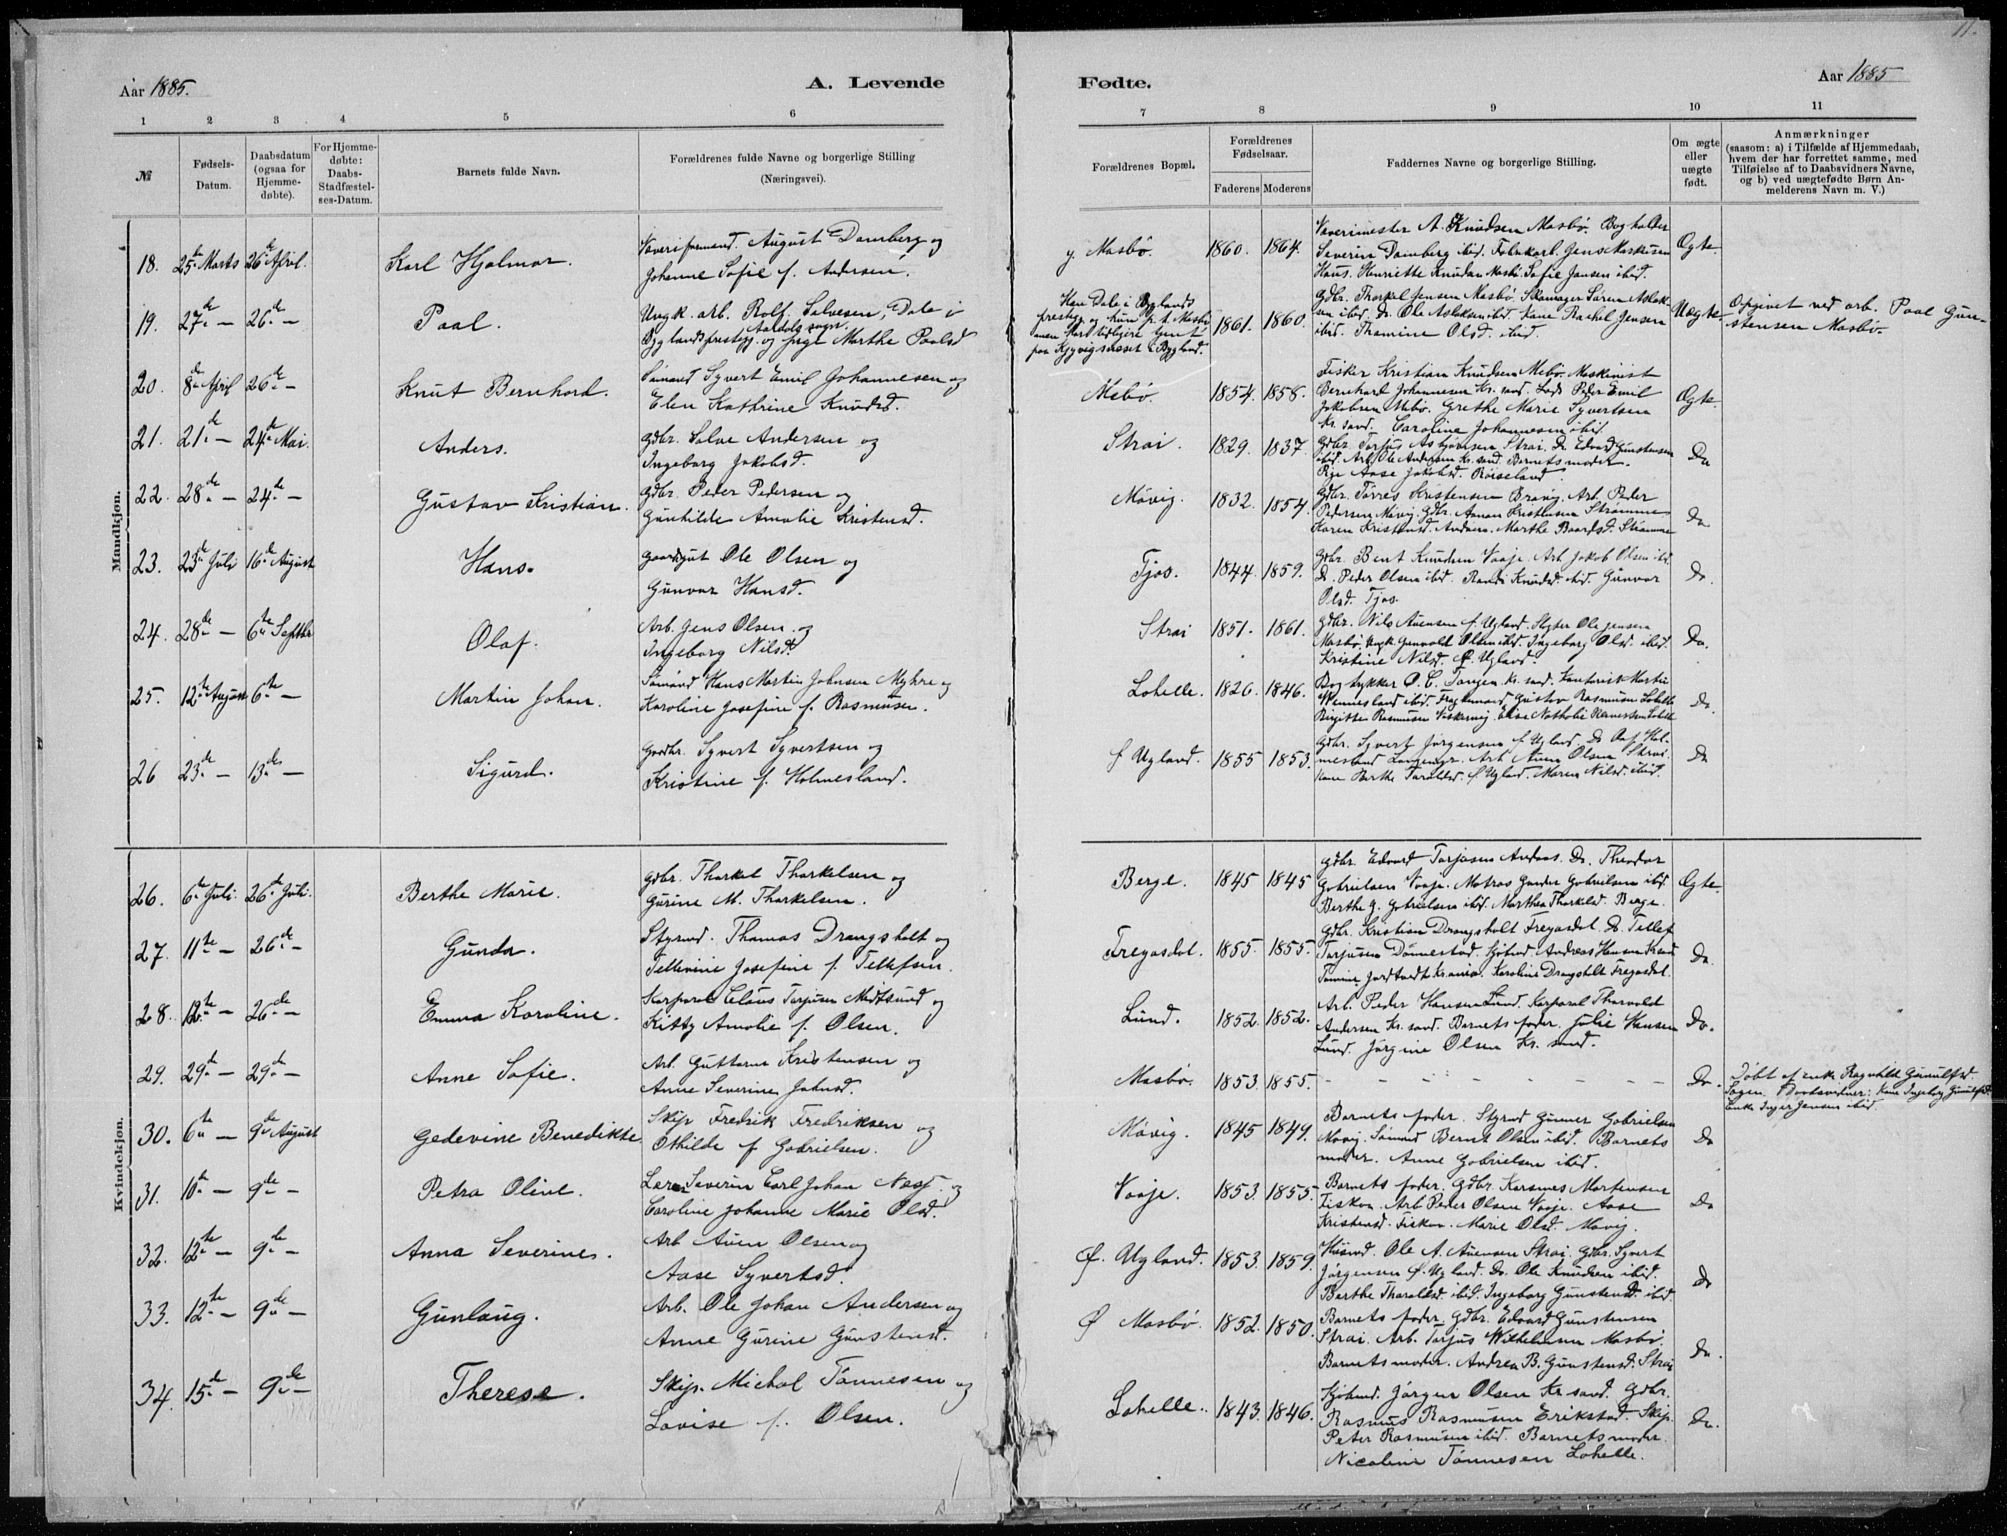 11.
Aar 1885.
A. Levende
Fødte.
Aar 1885
1 2 3 4 5 6
7 8 9 10 11
№
Fødsels-
Datum.
Daabsdatum
(ogsaa for
Hjemme-
døbte).
For Hjemme-
døbte:
Daabs-
Stadfæstel-
ses-Datum.
Barnets fulde Navn.
Forældrenes fulde Navne og borgerlige Stilling
(Næringsvei).
Forældrenes Bopæl.
Forældrenes
Fødselsaar.
Faderens Moderens
Faddernes Navne og borgerlige Stilling.
Om ægte
eller
uægte
født.
Anmærkninger
(saasom: a) i Tilfælde af Hjemmedaab,
hvem der har forrettet samme, med
Tilføielse af to Daabsvidners Navne,
og b) ved uægtefødte Børn An-
melderens Navn m. V.)
Mandkjøn.
18. 25de Marts 26de April. Karl Hjalmar.
Væveriformand. August Damberg og
Johanne Sofie f. Andersen.
y. Mosbø. 1860. 1864.
Vævermester A. Knudsen Mosbø. Bogholder
Severin Damberg ibid. Jens Markusen
Haus. Henriette Knudsen Mosbø Sofie Jensen ibid.
Ægte.
19. 27de — 26de — Paal.
Ungk. arb. Rolf Salvesen, Dale i
Byglands prestgj. og Inge Marthe Paalsd
1861. 1860.
Gdbr. Thorkel Jensen Mosbø. Skomager Søren Aslak-
sen ibid. Do. Ole Aslaksen ibid. Kone Rachel Jensen
ibid. Thomine Olsd. ibid.
Uægte.
Opgivet ved arb. Paal Gun-
stensen Mosbø.
20. 8de April 26de — Knut Bernhard.
Sømand Syvert Emil Johannesen og
Elen Kathrine Knudsd.
Mebø. 1854. 1858.
Fisker Kristian Knudsen Mebø. Maskinist
Bernhard Johannesen Kr.sand. Lods Peder Emil
Jakobsen Mebø. Grethe Marie Syvertsen
Kr.sand. Caroline Johannesen ibid.
Ægte.
21. 21de — 24de Mai. Anders.
Gdbr. Salve Andersen og
Ingeborg Jakobsd.
Strai. 1829. 1837.
Gdbr. Tarjus Asbjørnsen Strai. Do Edvard Gunstensen
ibid. Arb. Ole Andersen Kr.sand. Barnets moder.
Pige Aase Jakobsd. Røiseland.
Do
22. 28de — 24de — Gustav Kristian.
Gdbr. Peder Pedersen og
Gunhilde Amalie Kristensd.
Møvig. 1832. 1854
Gdbr. Tørres Kristensen Bravig. Arb. Peder
Pedersen Møvig. Gdbr. Aanon Kristensen Strømme
Karen Kristensd. Andaas. Marthe Baardsd. Strømme
Do
23. 23de Juli 16de August Hans.
Gaardgut Ole Olsen og
Gunvor Hansd.
Tjos. 1844. 1859.
Gdbr. Bent Knudsen Vaaje. Arb Jakob Olsen ibid.
Do. Peder Olsen ibid. Randi Knudsd. ibid. Gunvor
Olsd. Tjos.
Do.
24. 28de — 6te Septbr Olaf.
Arb. Jens Olsen og
Ingeborg Nilsd.
Strai 1851. 1861.
Gdbr. Nils Auensen f. Ugland. Slagter Ole Jensen
Mosbø Ungk Gunvald Olsen ibid. Ingeborg Olsd. ibid.
Kristine Nilsd. Ø. Ugland.
Do.
25. 12te August 6te — Martin Johan.
Sømand Hans Martin Johnsen Myhre og
Karoline Josefine f. Rasmusen.
Lohelle. 1826. 1846.
Bogtykker O. C. Tangen Kr. sand. Kontorist Martin
Vennesland ibid. Gustav Rasmusen Lohelle
Birgitte Rasmusen Elise Nathalie Lohelle
Do.
26 23de — 13de — Sigurd.
Gaardbr. Syvert Syvertsen og
Kristine f. Holmesland.
Ø Ugland. 1855 1853.
Gdbr. Syvert Jørgensen Ø. Ugland. Do Hol-
mesland Langemyr. Arb Auen Olsen Strai.
Kone Berthe Taraldsd. Ø. Ugland. Maren Nilsd. ibid.
Do
Kvindekjøn.
26. 6te Juli. 26de Juli. Berthe Marie.
Gdbr. Thorkel Thorkelsen og
Gurine M. Thorkelsen.
Berge. 1845 1845
Gdbr. Edvard Tarjusen Andaas. Do. Theodor
Gabrielsen Vaaje. Matros Gunder Gabrielsen ibid.
Berthe G. Gabrielsen ibid. Marthea Thorkelsd. Berge.
Ægte.
27. 11te — 26de — Gunda.
Styrmd. Thomas Drangsholt og
Tellevine Josefine f. Tellefsen.
Fregasdal. 1855. 1855.
Gdbr. Kristian Drangsholt Fregasdal. Do. Tellef
Tarjusen Dønnestad. Sjømd Andreas Hansen Kr.sand
Tomine Kr.ania. Karoline Drangsholt Fregasdal.
Do.
28. 12te — 26de — Emma Karoline.
Korporal Claus Tarjusen Medtsund og
Kitty Amalie f. Olsen.
Lund. 1852. 1852.
Arb. Peder Hansen Lund. Korporal Thorvald
Andersen Kr.sand. Barnets fader. Julie Hansen
Lund. Jørgine Olsen Kr. sand.
Do.
29. 29de — 29de — Anne Sofie.
Arb. Guttorm Kristensen og
Anne Severine Johnsd.
Mosbø. 1853. 1855. — — — — — —
Do.
Døbt af enke Ragnhilde Gunulfsd
Daabsvidner: Kone Ingeborg Gunulfsd.
Enke Inger Jensen ibid.
30. 6te — 9de August Gedevine Benedikte
Skip Fredrik Fredriksen og
Othilde f Gabrielsen.
Møvig. 1845 1849.
Barnets fader. Styrmd Gunner Gabrielsen
Møvig. Sømand Bernt Olsen ibid. Barnets
moder. Anne Gabrielsen ibid.
Do
31. 10de — 9de — Petra Oline.
Lærer Severin Carl Johan Næss. og
Caroline Johanne Marie Olsd.
Vaaje. 1853. 1855.
Barnets fader. Gdbr. Karsmes Mortensen
Fiskaa. Arb Peder Olsen Vaaje. Aase
Kristensd. Fiskaa. Marie Olsd. Møvig.
Do
32. 12te — 9de — Anna Severine.
Arb Auen Olsen og
Aase Syvertsd.
Ø. Ugland. 1853. 1859.
Husmd. Ole A. Auensen Strai. Gdbr. Syvert
Jørgensen Ø. Ugland. Do. Ole Knudsen ibid.
Berthe Tharaldsd. ibid. Ingeborg Gunstensd. ibid.
Do
33. 12te — 9de — Gunlaug.
Arb. Ole Johan Andersen og
Anne Gurine Gunstensd.
Ø Mosbø. 1852. 1850.
Barnets fader. Gdbr. Edvard Gunstensen
Strai. Arb. Tarjus Wilhelmsen Mosbø.
Barnets moder. Andrea B. Gunstensd. Strai
Do.
34. 15de — 9de — Therese.
Skip. Michal Tønnesen og
Lovise f. Olsen.
Lohelle. 1843. 1846.
Sjømd. Jørgen Olsen Kr.sand. Gdbr.
Rasmus Rasmusen Erikstad. Skip.
Peter Rasmusen ibid. Barnets moder.
Nicoline Tønnesen Lohelle.
Do.